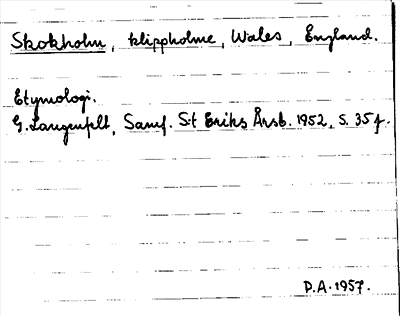 Skokholm, klippholme, Wales, England.
Etymologi.
G. Langenfelt, Samf. S:t Eriks Årsb. 1952, s. 35 f.
P.A. 1957.